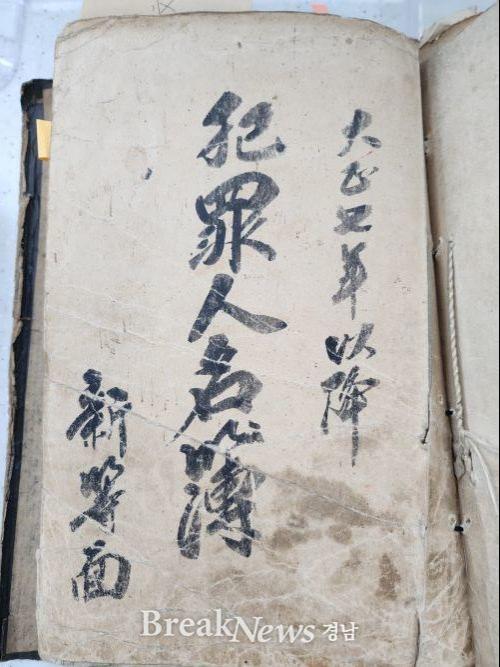 大正七年以降
犯罪人名簿
新等面
BreakNews 경남